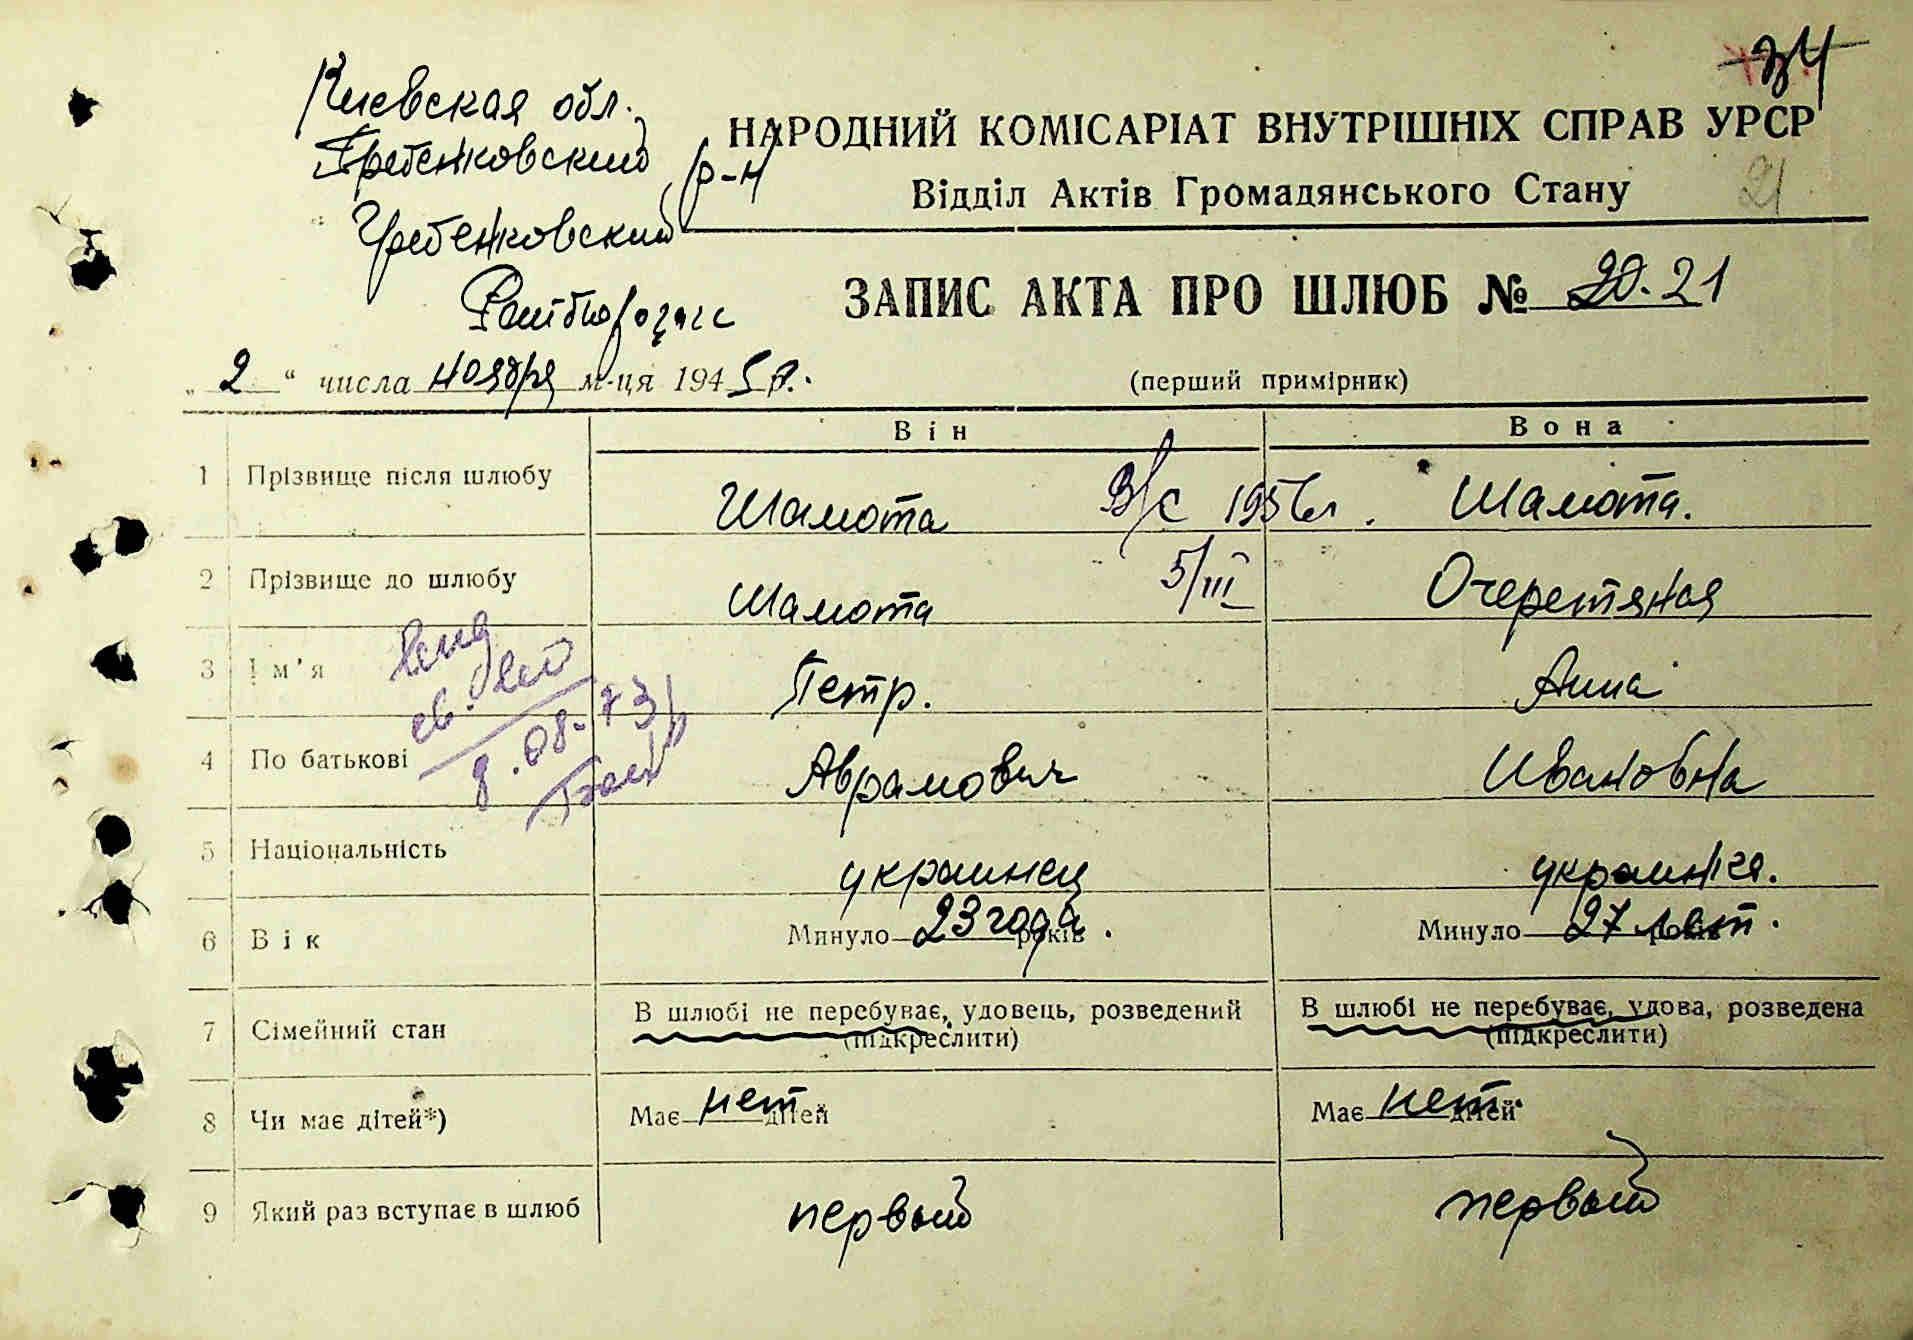 34
Киевская обл.
Гребенковский р-н
Гребенковский
НАРОДНИЙ КОМІСАРІАТ ВНУТРІШНІХ СПРАВ УРСР
Відділ Актів Громадянського Стану
21
ЗАПИС АКТА ПРО ШЛЮБ № 20. 21
„2“ числа ноября м-ця 1945 р.
(перший примірник)
Він Вона
1 Прізвище після шлюбу Шамота В/с 1956г. Шамота.
2 Прізвище до шлюбу Шамота 5/III Очеретяная
3 Ім'я Петр. Анна
4 По батькові Аврамович Ивановна
8.08-73
5 Національність украинец украинка.
6 Вік Минуло 23 года років. Минуло 27 лет років.
7 Сімейний стан В шлюбі не перебуває, удовець, розведений В шлюбі не перебуває, удова, розведена
(підкреслити) (підкреслити)
8 Чи має дітей*) Має нет дітей Має нет дітей
9 Який раз вступає в шлюб первый первый